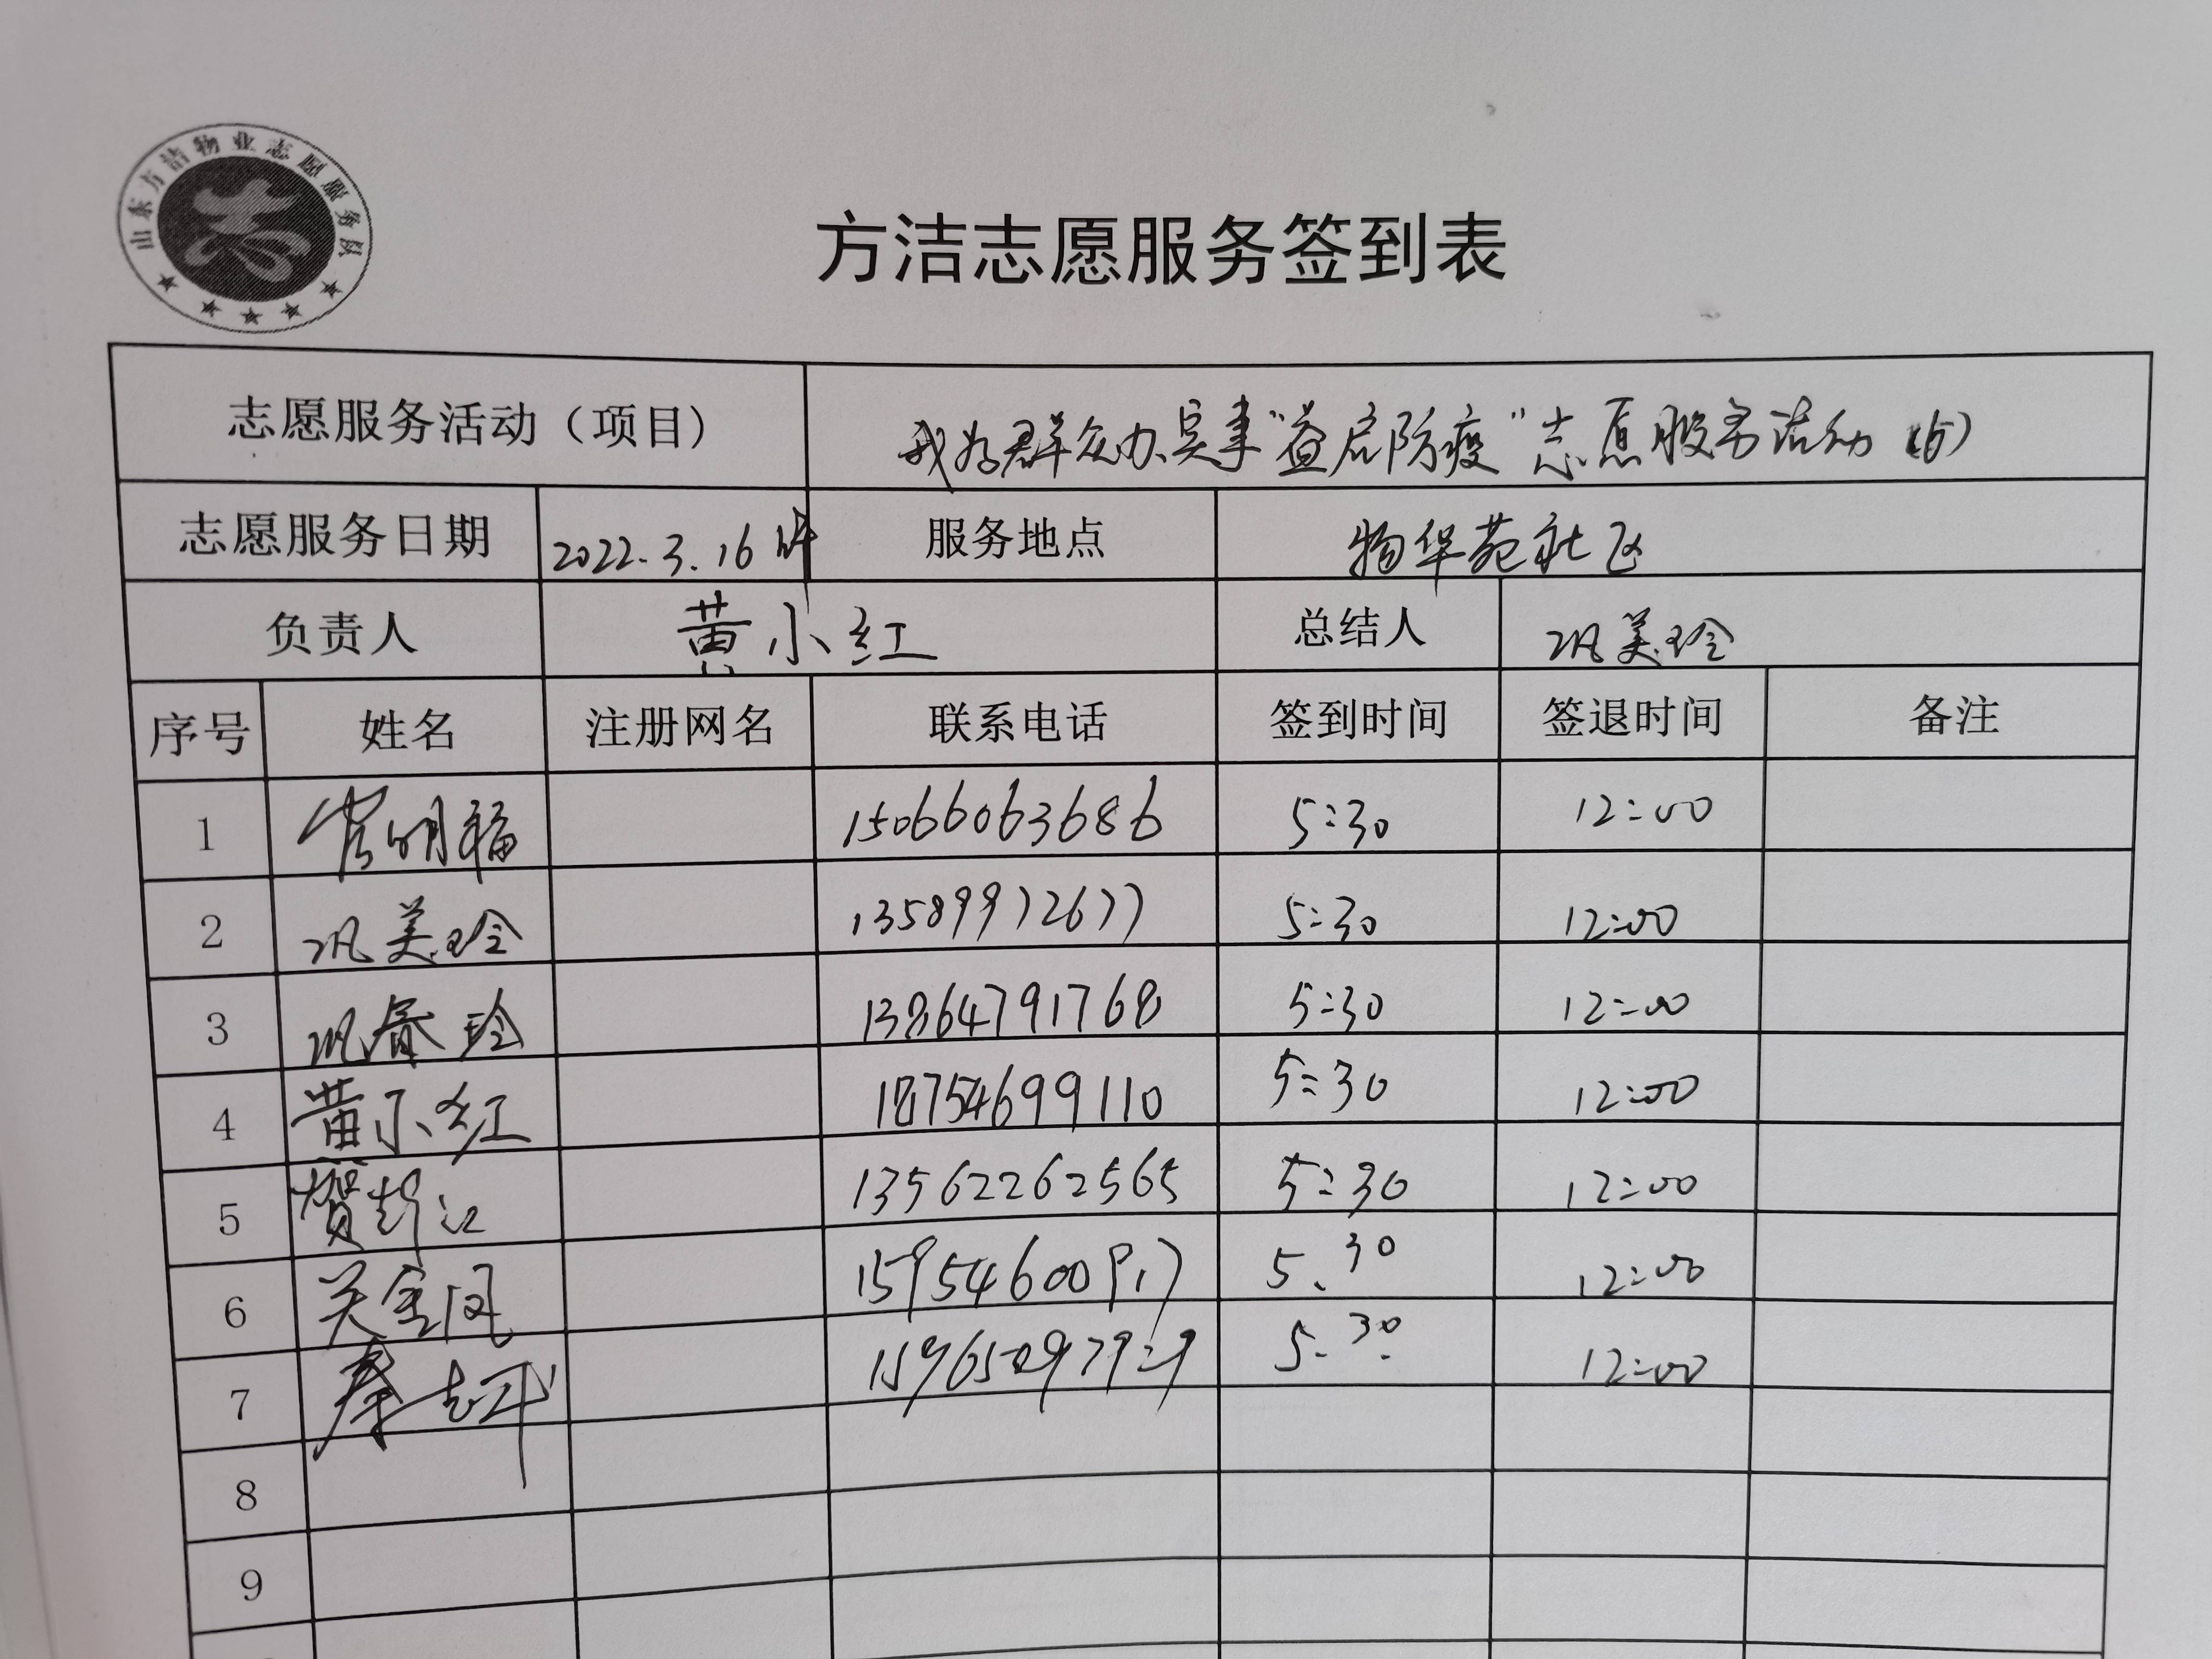 山东方洁物业志愿服务队
方洁志愿服务签到表
志愿服务活动（项目） 我为群众办实事"益启防疫"志愿服务活动（5）
志愿服务日期 2022.3.16 服务地点 物华苑社区
负责人 黄小红 总结人 巩美玲
序号 姓名 注册网名 联系电话 签到时间 签退时间 备注
1 明福 15066063686 5:30 12:00
2 巩美玲 13589972677 5:30 12:00
3 巩春玲 13864791768 5:30 12:00
4 黄小红 18754699110 5:30 12:00
5 贺 13562262565 5:30 12:00
6 关金凤 15954600917 5.30 12:00
7 秦志 5.30 12:00
8
9